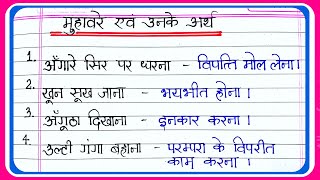 मुहावरे एवं उनके अर्थ
1. अँगारे सिर पर धरना - विपत्ति मोल लेना।
2. खून सूख जाना - भयभीत होना।
3. अँगूठा दिखाना - इनकार करना।
4. उल्टी गंगा बहाना - परम्परा के विपरीत
काम करना।